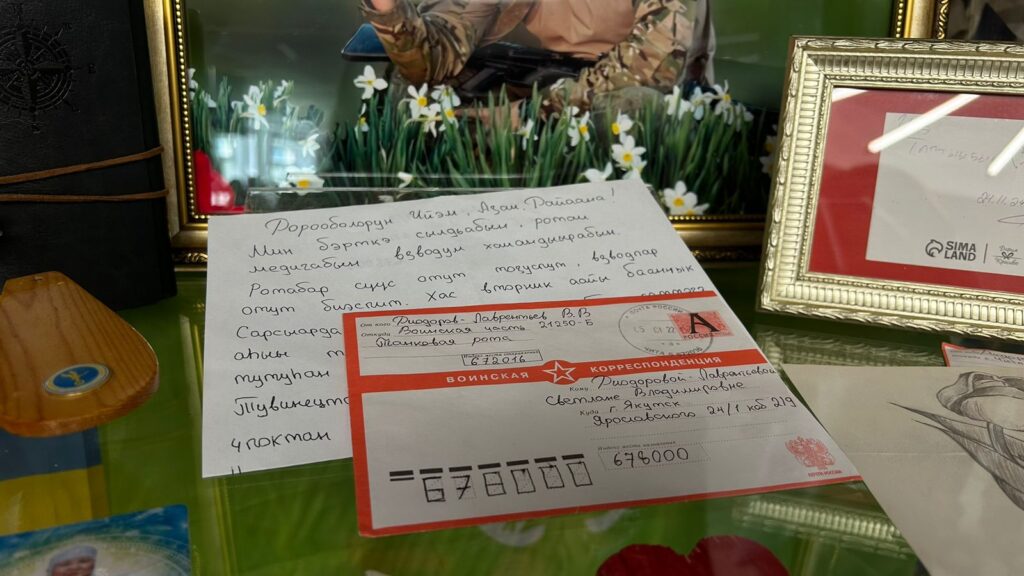 Дорооболорун Ийэм, Азам, Дайаана!
Мин бэрткэ сылдьабын, ротам
медигабын взводум хамандыырабын.
Ротабар сүүс отут тоҕуспут, взводпар
отут биэспит. Хас вторник аайы баанньык
Сарсыарда
аһыы
тутуһан
Тувинецтэ
Чпоктан
От кого Фиодоров-Лаврентьев В.В
Откуда Воинская часть 21250-Б
Танковая рота
672016
ПОЧТА РОССИИ
А
РОССИЯ
ВОИНСКАЯ КОРРЕСПОНДЕНЦИЯ
Кому Фиодоровой-Лаврентьевой
Светлане Владимировне
Куда г. Якутск
Ярославского 24/1 каб 219
Индекс места назначения
678000
678000
ПОЧТА РОССИИ
SIMA
LAND